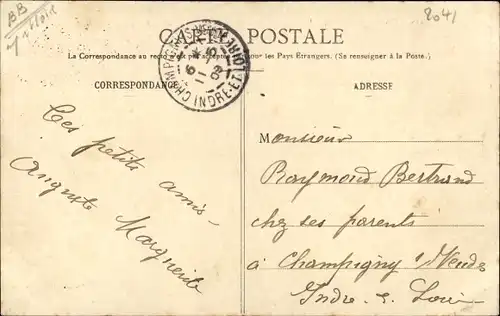 BB
2041
CARTE POSTALE
La Correspondance au recto n'est pas acceptée pour les Pays Étrangers. (Se renseigner à la Poste.)
CORRESPONDANCE
ADRESSE
CHAMPIGNY INDRE-ET-LOIRE
6 *
11
09
Ces petits amis
Auguste Marguerite
Monsieur
Raymond Bertrand
chez ses parents
à Champigny s/Veude
Indre & Loire